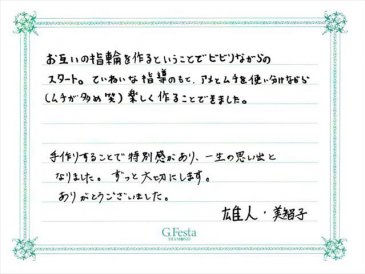 お互いの指輪を作るということでビビりながらの
スタート。ていねいな指導のもと、アメとムチを使い分けながら
(ムチが多め笑)楽しく作ることできました。
手作りすることで特別感があり、一生の思い出と
なりました。ずっと大切にします。
ありがとうございました。
雄人・美智子
G.Festa
DIAMOND